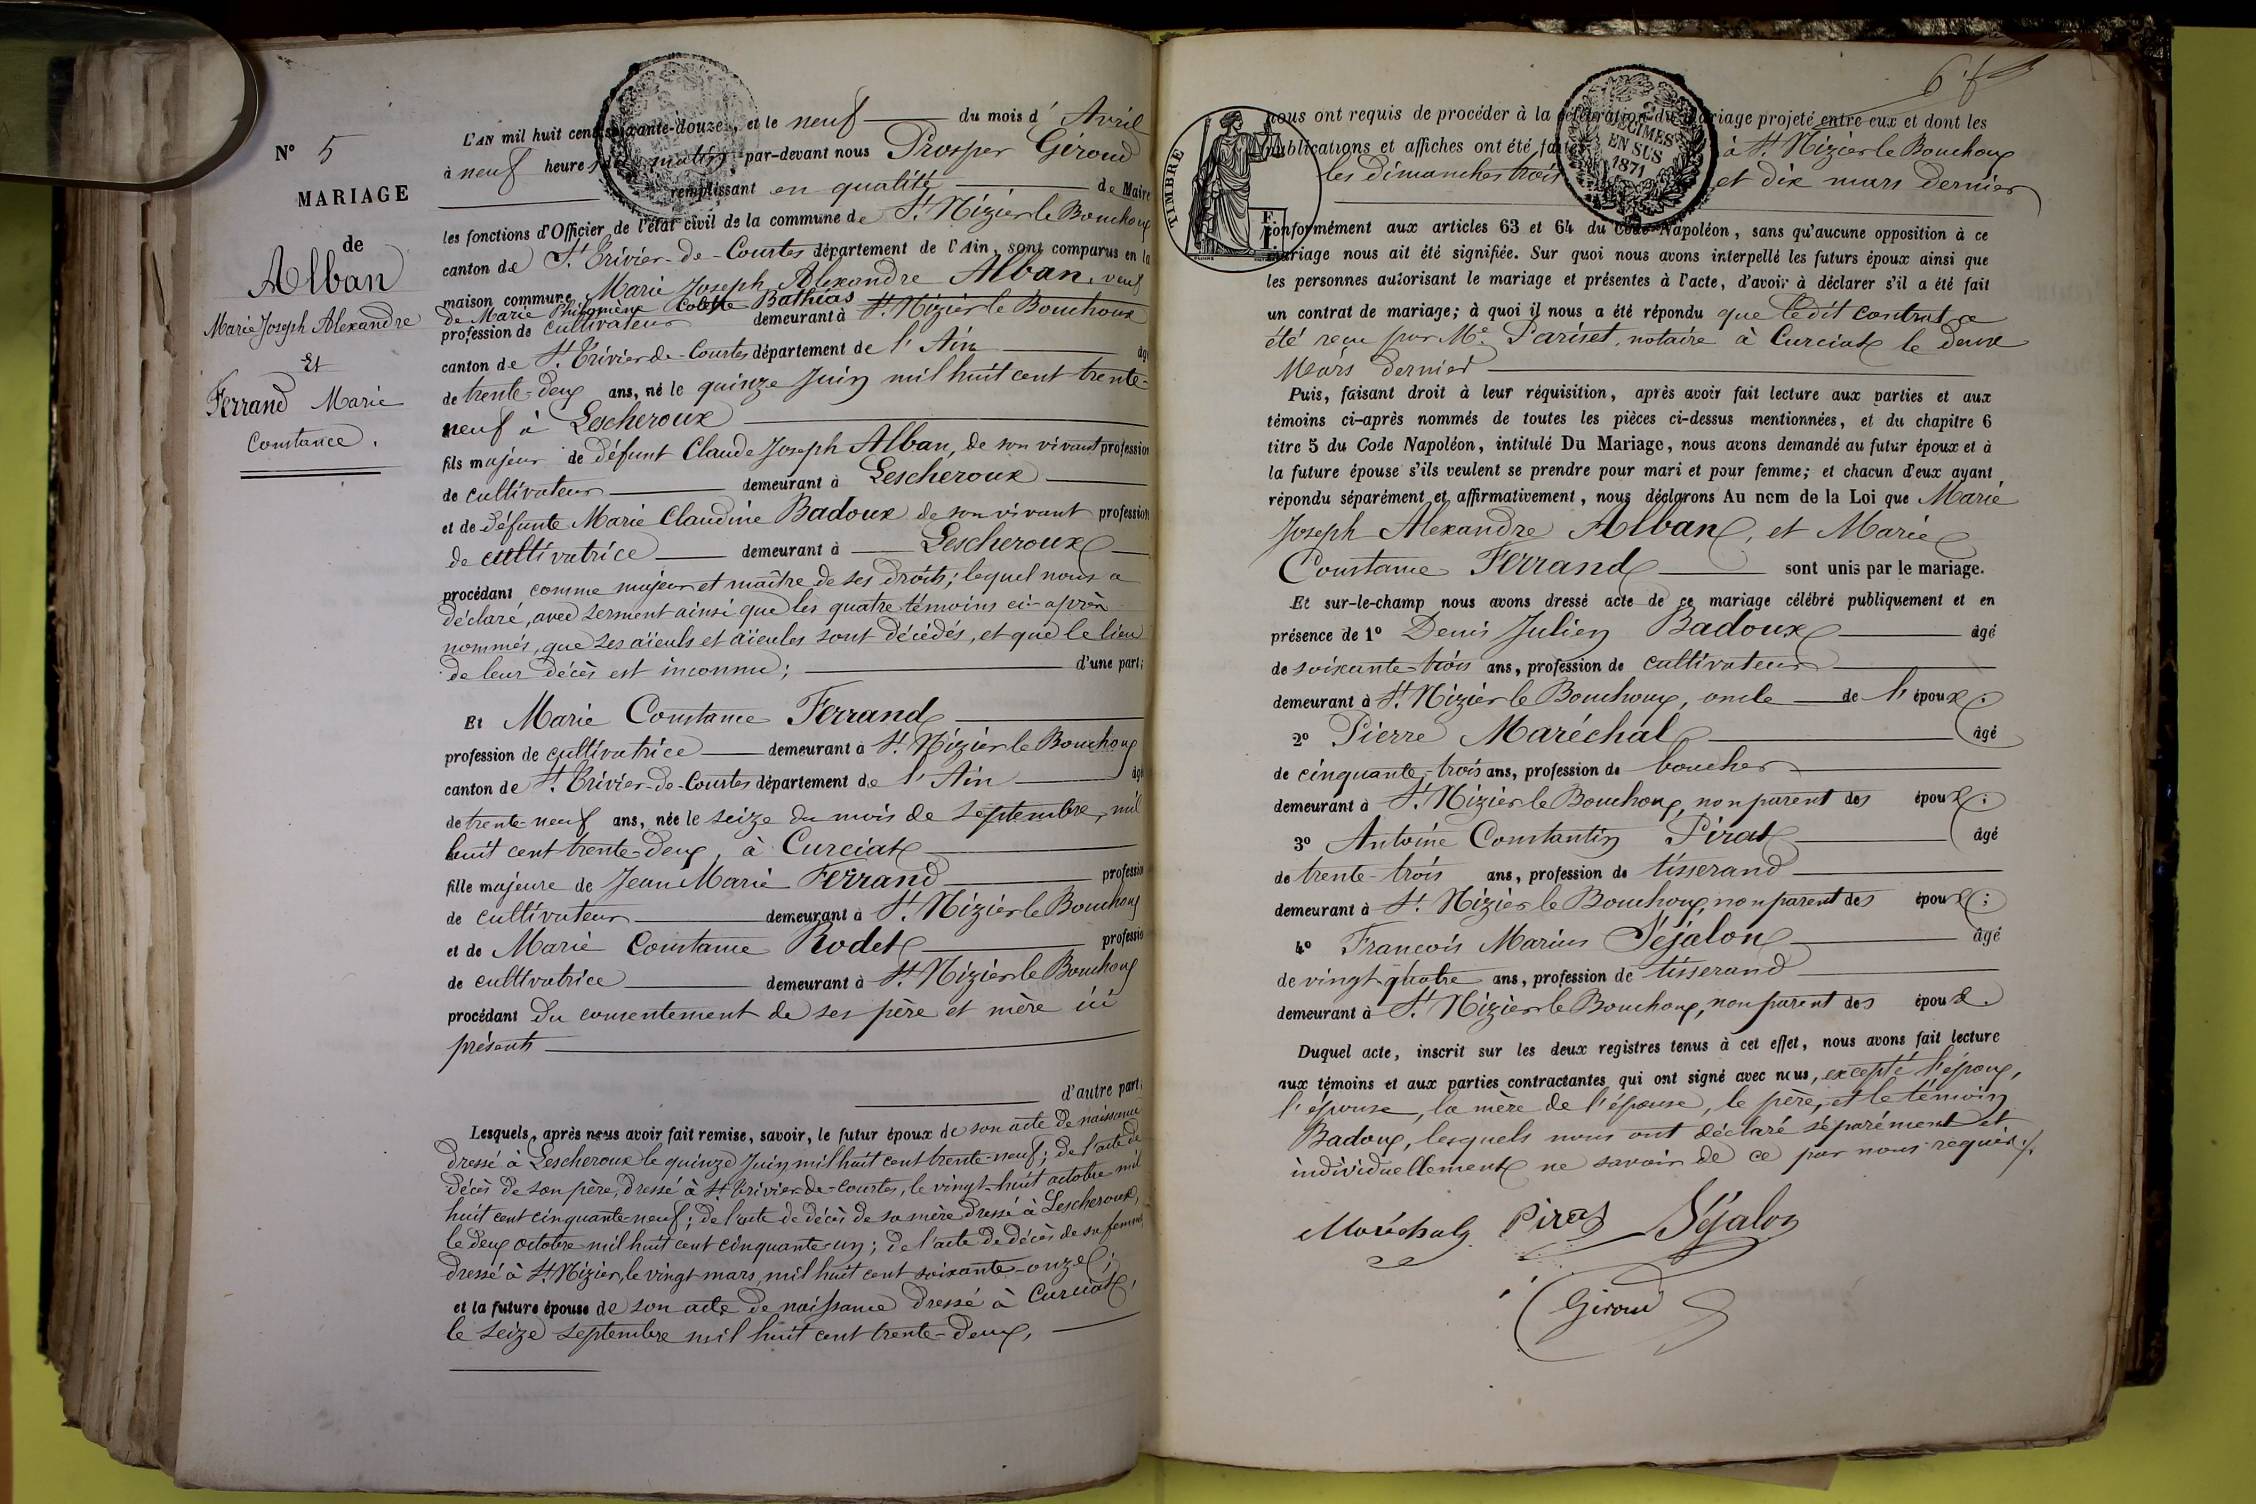 N° 5
MARIAGE
de
Alban
Marie Joseph Alexandre
Et
Ferrand Marie
Constance.
L'AN mil huit cent soixante-douze, et le neuf du mois d'Avril
à neuf heures du matin par-devant nous Prosper Giroud
remplissant en qualité de Maire
les fonctions d'Officier de l'état civil de la commune de St Nizier le Bouchoux
canton de St Trivier-de-Courtes département de l'Ain, sont comparus en la
maison commune, Marie Joseph Alexandre Alban, veuf
de Marie Philomène Colette Bathias
profession de cultivateur demeurant à St Nizier le Bouchoux
canton de St Trivier-de-Courtes département de l'Ain âgé
de trente-deux ans, né le quinze Juin mil huit cent trente-
neuf à Lescheroux
fils majeur de défunt Claude Joseph Alban, de son vivant profession
de cultivateur demeurant à Lescheroux
et de défunte Marie Claudine Badoux de son vivant profession
de cultivatrice demeurant à Lescheroux
procédant comme majeur et maître de ses droits; lequel nous a
déclaré, avec serment ainsi que les quatre témoins ci-après
nommés, que ses aïeuls et aïeules sont décédés, et que le lieu
de leur décès est inconnu; d'une part;
Et Marie Constance Ferrand
profession de cultivatrice demeurant à St Nizier le Bouchoux
canton de St Trivier-de-Courtes département de l'Ain âgé
de trente-neuf ans, née le seize du mois de septembre, mil
huit cent trente-deux, à Curciat
fille majeure de Jean Marie Ferrand profession
de cultivateur demeurant à St Nizier le Bouchoux
et de Marie Constance Rodet profession
de cultivatrice demeurant à St Nizier le Bouchoux
procédant du consentement de ses père et mère ici
présents
d'autre part;
Lesquels, après nous avoir fait remise, savoir, le futur époux de son acte de naissance
dressé à Lescheroux le quinze Juin mil huit cent trente-neuf; de l'acte de
décès de son père, dressé à St Trivier-de-Courtes, le vingt-huit octobre mil
huit cent cinquante-neuf; de l'acte de décès de sa mère dressé à Lescheroux,
le deux octobre mil huit cent cinquante-un; de l'acte de décès de sa femme
dressé à St Nizier, le vingt mars, mil huit cent soixante-onze;
et la future épouse de son acte de naissance dressé à Curciat,
le seize septembre mil huit cent trente-deux,
nous ont requis de procéder à la célébration du mariage projeté entre eux et dont les
publications et affiches ont été faites à St Nizier le Bouchoux
les dimanches trois et dix mars dernier
TIMBRE
2 DÉCIMES
EN SUS
1871
conformément aux articles 63 et 64 du Code Napoléon, sans qu'aucune opposition à ce
mariage nous ait été signifiée. Sur quoi nous avons interpellé les futurs époux ainsi que
les personnes autorisant le mariage et présentes à l'acte, d'avoir à déclarer s'il a été fait
un contrat de mariage; à quoi il nous a été répondu que ledit contrat a
été reçu par Me Pariset, notaire à Curciat le deux
Mars dernier
Puis, faisant droit à leur réquisition, après avoir fait lecture aux parties et aux
témoins ci-après nommés de toutes les pièces ci-dessus mentionnées, et du chapitre 6
titre 5 du Code Napoléon, intitulé Du Mariage, nous avons demandé au futur époux et à
la future épouse s'ils veulent se prendre pour mari et pour femme; et chacun d'eux ayant
répondu séparément et affirmativement, nous déclarons Au nom de la Loi que Marie
Joseph Alexandre Alban, et Marie
Constance Ferrand sont unis par le mariage.
Et sur-le-champ nous avons dressé acte de ce mariage célébré publiquement et en
présence de 1° Denis Julien Badoux âgé
de soixante-trois ans, profession de cultivateur
demeurant à St Nizier le Bouchoux, oncle de l'époux;
2° Pierre Maréchal âgé
de cinquante-trois ans, profession de boucher
demeurant à St Nizier le Bouchoux, non parent des époux;
3° Antoine Constantin Pirat âgé
de trente-trois ans, profession de tisserand
demeurant à St Nizier le Bouchoux, non parent des époux;
4° François Marius Séjalon âgé
de vingt-quatre ans, profession de tisserand
demeurant à St Nizier le Bouchoux, non parent des époux.
Duquel acte, inscrit sur les deux registres tenus à cet effet, nous avons fait lecture
aux témoins et aux parties contractantes qui ont signé avec nous, excepté l'époux,
l'épouse, la mère de l'épouse, le père, et le témoin
Badoux, lesquels nous ont déclaré séparément et
individuellement ne savoir de ce par nous requis.
Maréchal Pirat Séjalon
Giroud